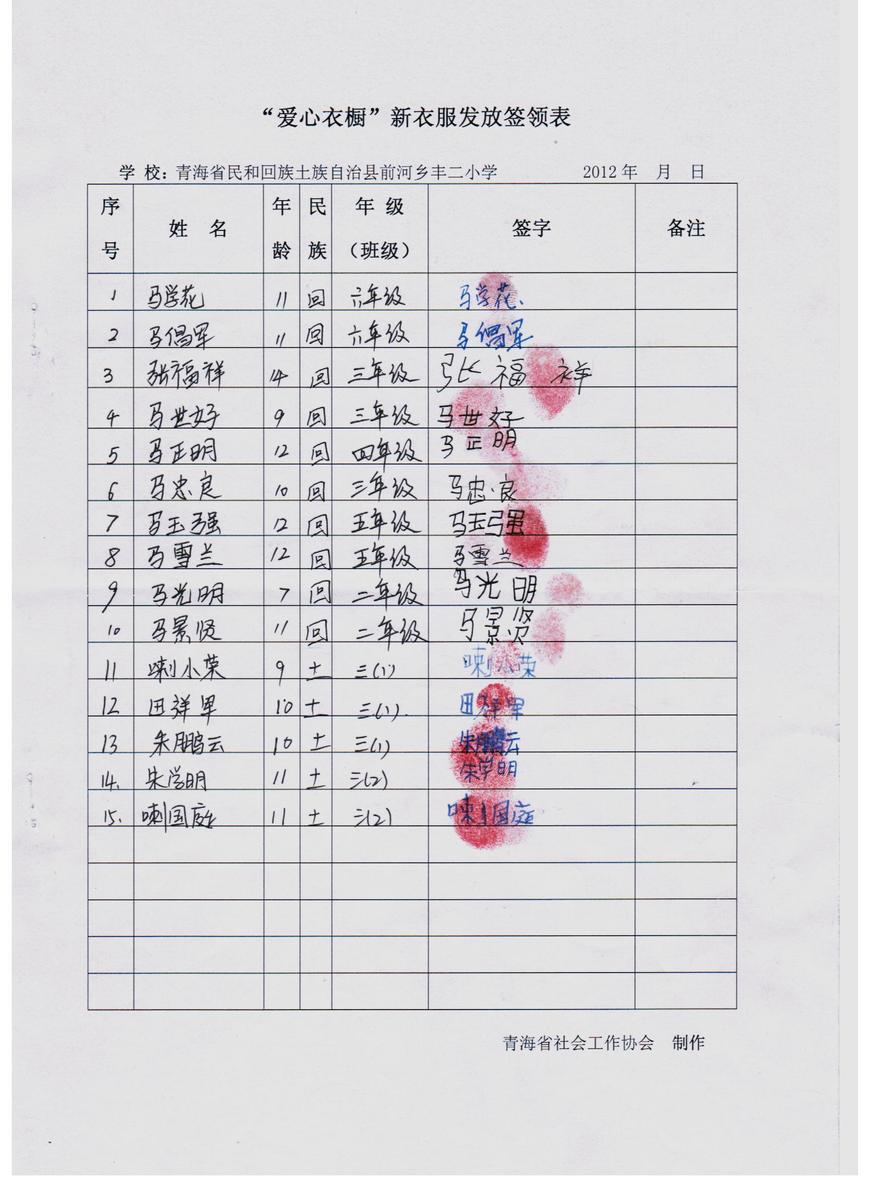 “爱心衣橱”新衣服发放签领表
学 校：青海省民和回族土族自治县前河乡丰二小学 2012 年 月 日
序号 姓 名 年龄 民族 年 级（班级） 签字 备注
1 马学花 11 回 六年级 马学花
2 马倡军 11 回 六年级 马倡军
3 张福祥 14 回 三年级 张福祥
4 马世好 9 回 三年级 马世好
5 马正明 12 回 四年级 马正明
6 马忠良 10 回 三年级 马忠良
7 马玉强 12 回 五年级 马玉强
8 马雪兰 12 回 五年级 马雪兰
9 马光明 7 回 二年级 马光明
10 马景贤 11 回 二年级 马景贤
11 喇小荣 9 土 三(1) 喇小荣
12 田祥军 10 土 三(1). 田祥军
13 朱鹏云 10 土 三(1) 朱鹏云
14. 朱学明 11 土 三(2) 朱学明
15. 喇国庭 11 土 三(2) 喇国庭
青海省社会工作协会 制作